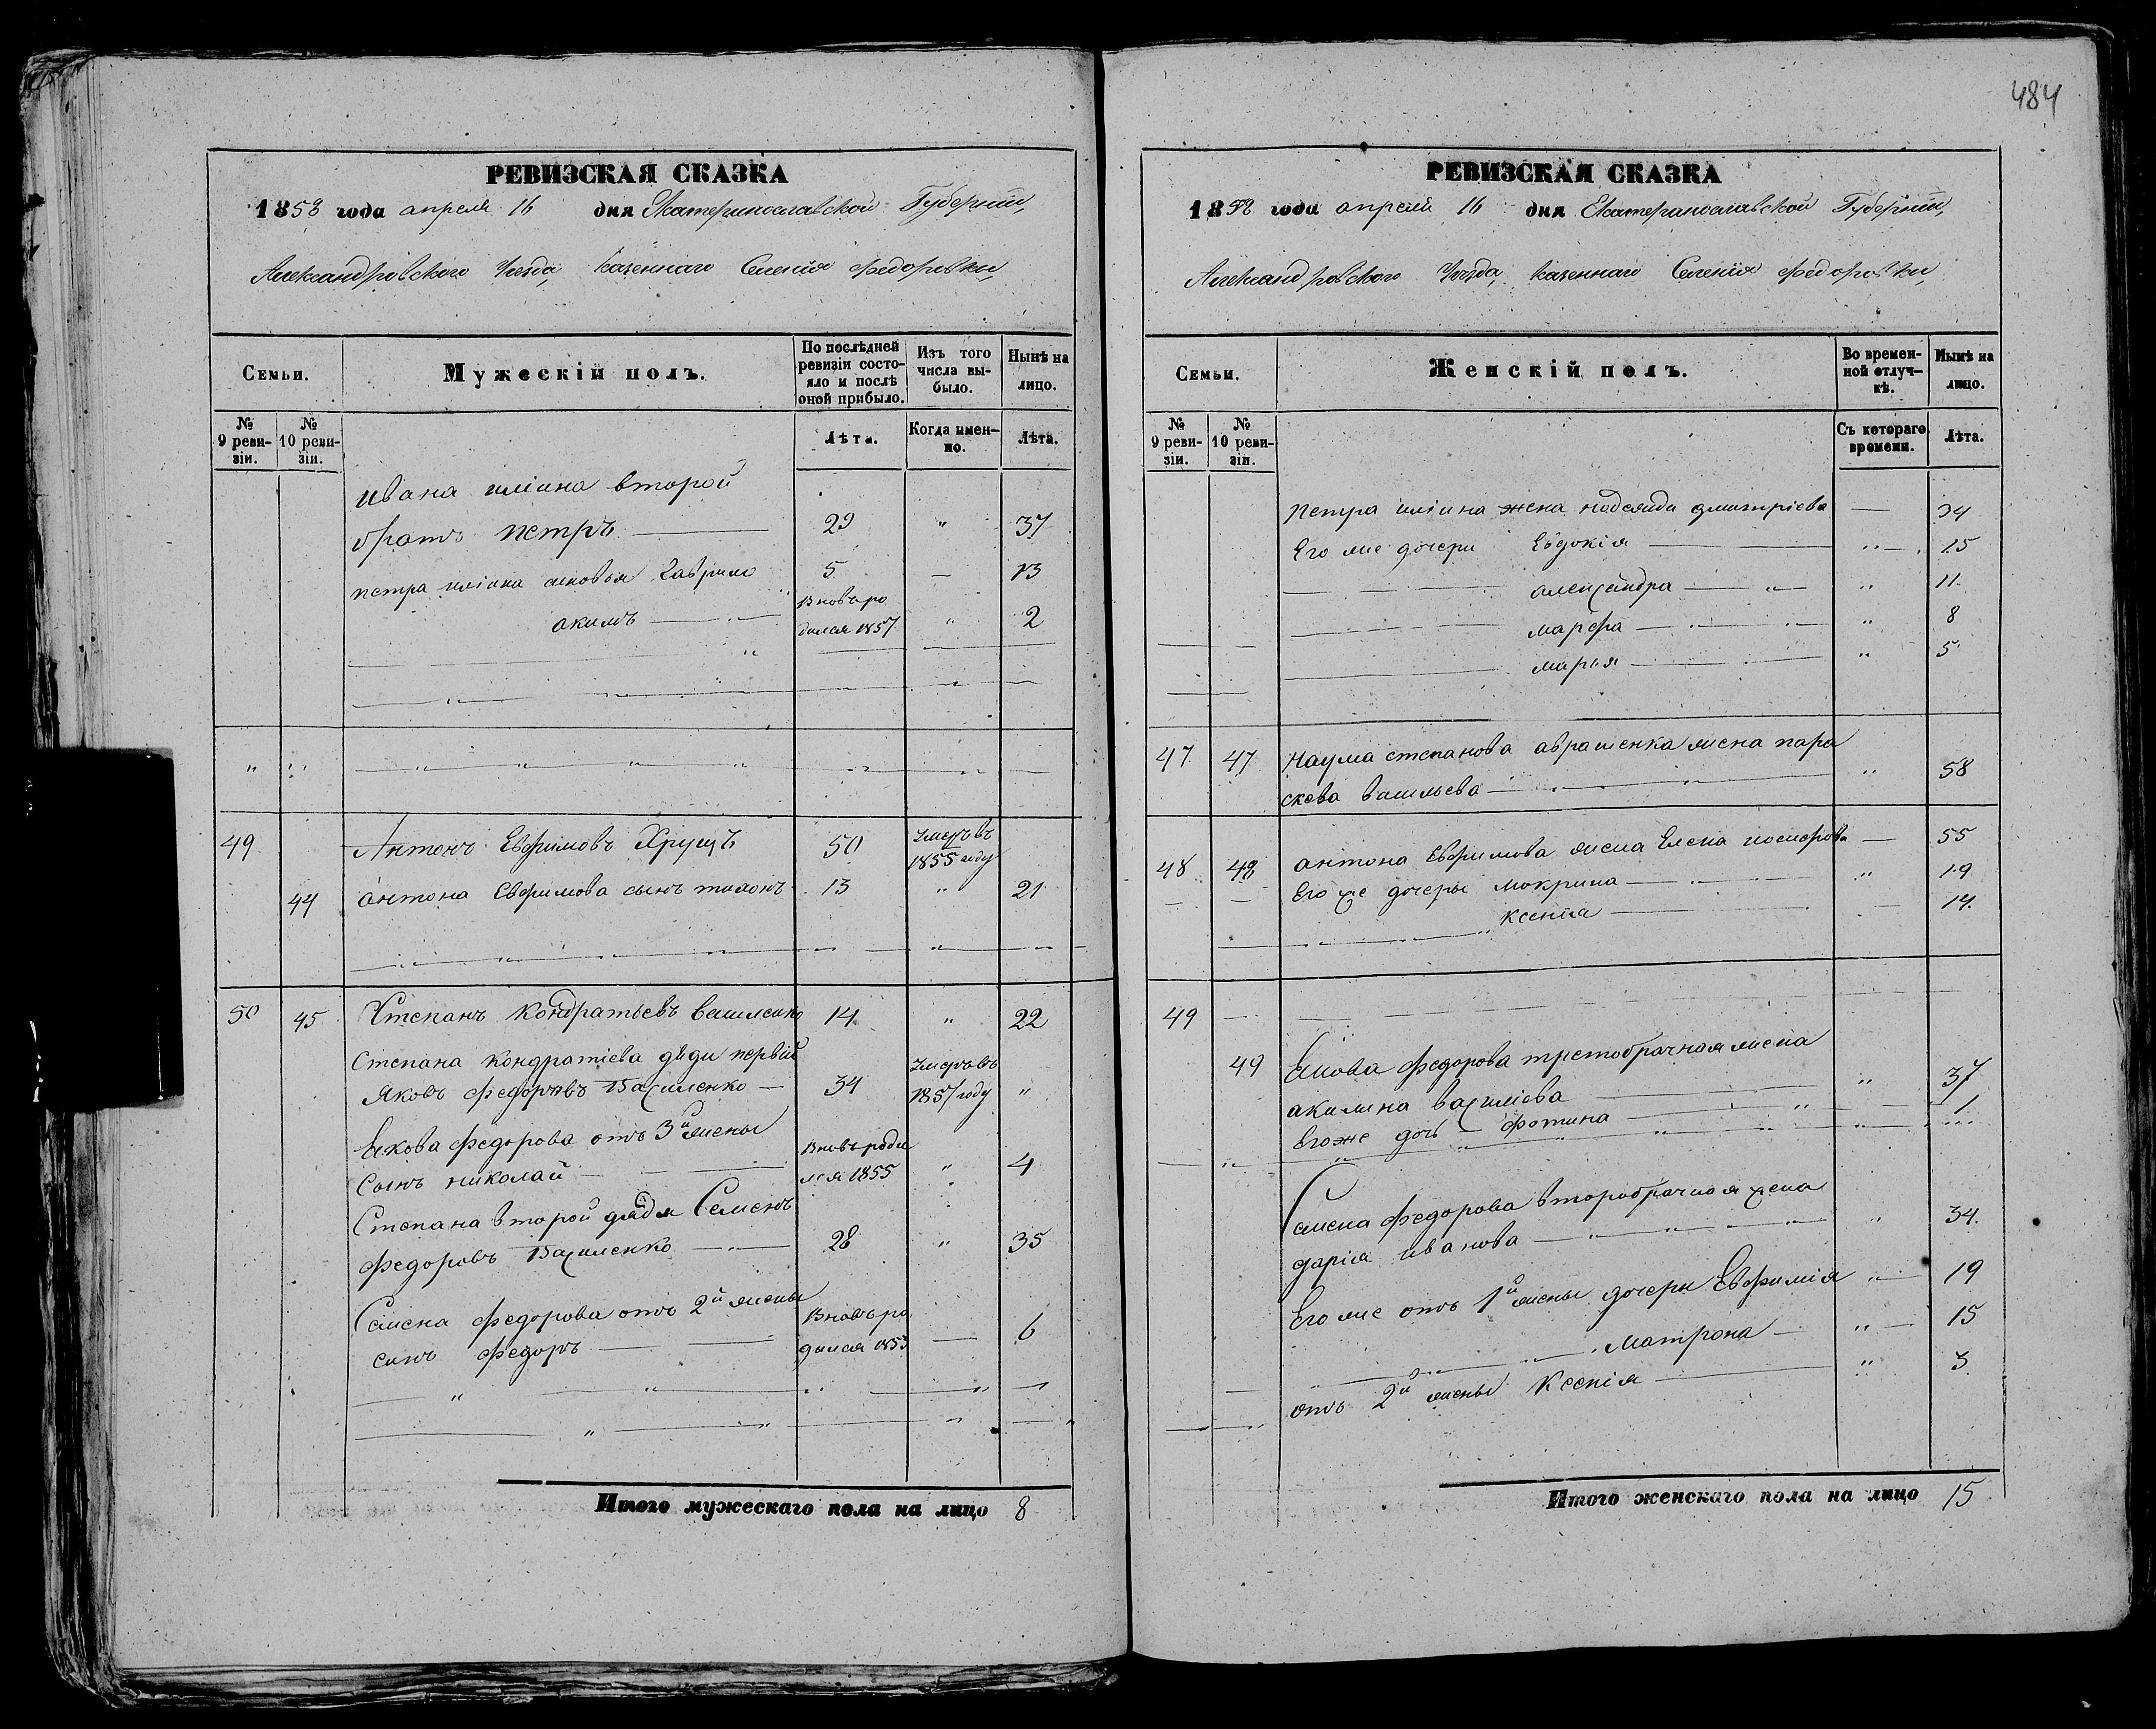 484
РЕВИЗСКАЯ СКАЗКА
1858 года апреля 16 дня Екатеринославской Губернии,
Александровского Уезда, казеннаго Селенія Федоровки,
Семьи.
Мужескій полъ.
По послѣдней ревизіи состояло и послѣ оной прибыло.
Изъ того числа выбыло.
Нынѣ на лицо.
№ 9 ревизіи.
№ 10 ревизіи.
Лѣта.
Когда именно.
Лѣта.
ивана иліина второй
братъ петръ 29 " 37
петра иліина сыновья Гаврило 5 — 13
акимъ Вновь родился 1857 " 2
49 Антонъ Евфимовъ Хрущъ 50 Умеръ въ 1855 году
44 антона Евфимова сынъ тихонъ 13 " 21
50 45 Степанъ Кондратьевъ Василенко 14 " 22
Степана кондратіева дяди первый
Яковъ федоровъ Василенко — 34 Умеръ въ 1857 году "
Якова федорова отъ 3й жены
сынъ николай Вновь родился 1855 " 4
Степана второй дядя Семенъ
федоровъ Василенко 28 " 35
Семена федорова отъ 2й жены
сынъ федоръ Вновь родился 1853 — 6
Итого мужескаго пола на лицо 8
РЕВИЗСКАЯ СКАЗКА
1858 года апреля 16 дня Екатеринославской Губернии,
Александровского Уезда, казеннаго Селенія Федоровки,
Семьи.
Женскій полъ.
Во временной отлучкѣ.
Нынѣ на лицо.
№ 9 ревизіи.
№ 10 ревизіи.
Съ котораго времени.
Лѣта.
Петра иліина жена надежда дмитріева — 34
Его же дочери Евдокія " 15
александра " 11
марфа " 8
марія " 5
47 47 Наума степанова авраменка жена пара
скева васильева " 58
48 48 антона Евфимова жена Елена — 55
Его же дочеры Мокрина " 19
ксенія — 14
49
49 Якова федорова третобрачная жена
акилина василіева " 37
Его же дочь фотина 1
Семена федорова второбрачная жена
дарія иванова " 34
Его же отъ 1й жены дочери Евфимія " 19
Матрона " 15
отъ 2й жены Ксенія " 3
Итого женскаго пола на лицо 15